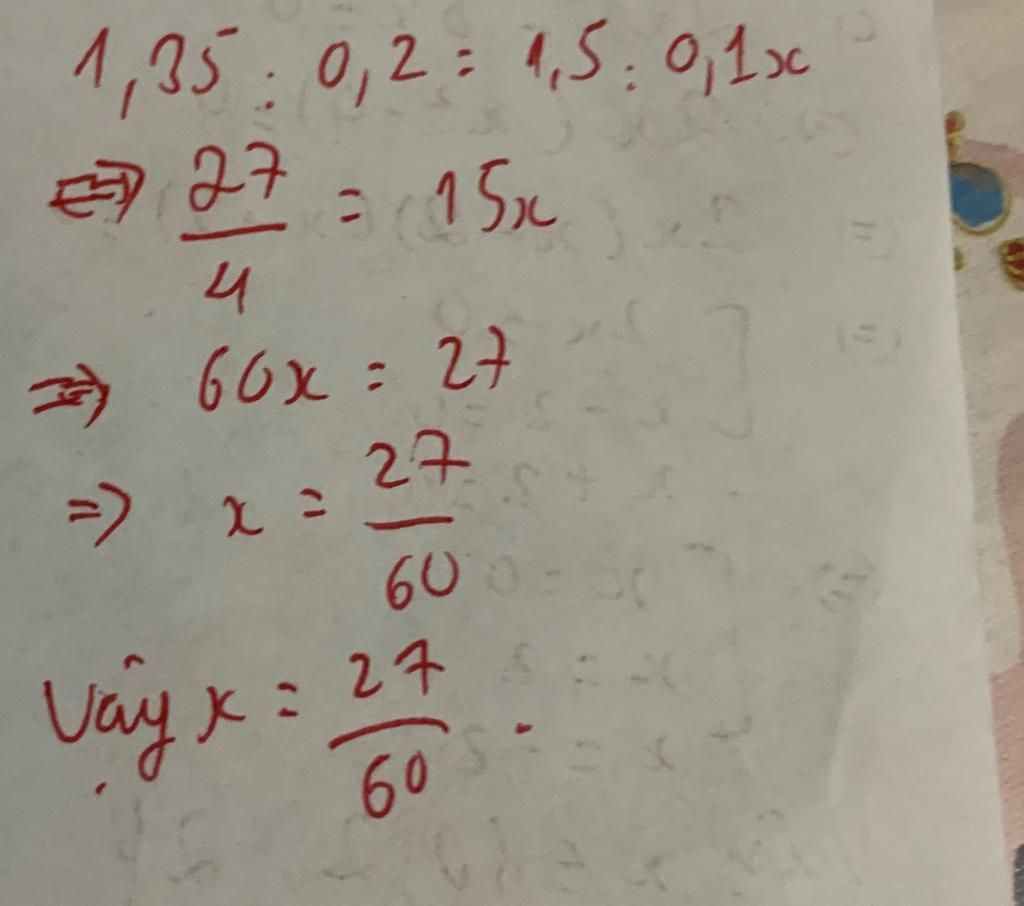 1,35 : 0,2 = 1,5 : 0,1x
⇔ 27/4 = 15x
⇒ 60x = 27
⇒ x = 27/60
Vậy x = 27/60.